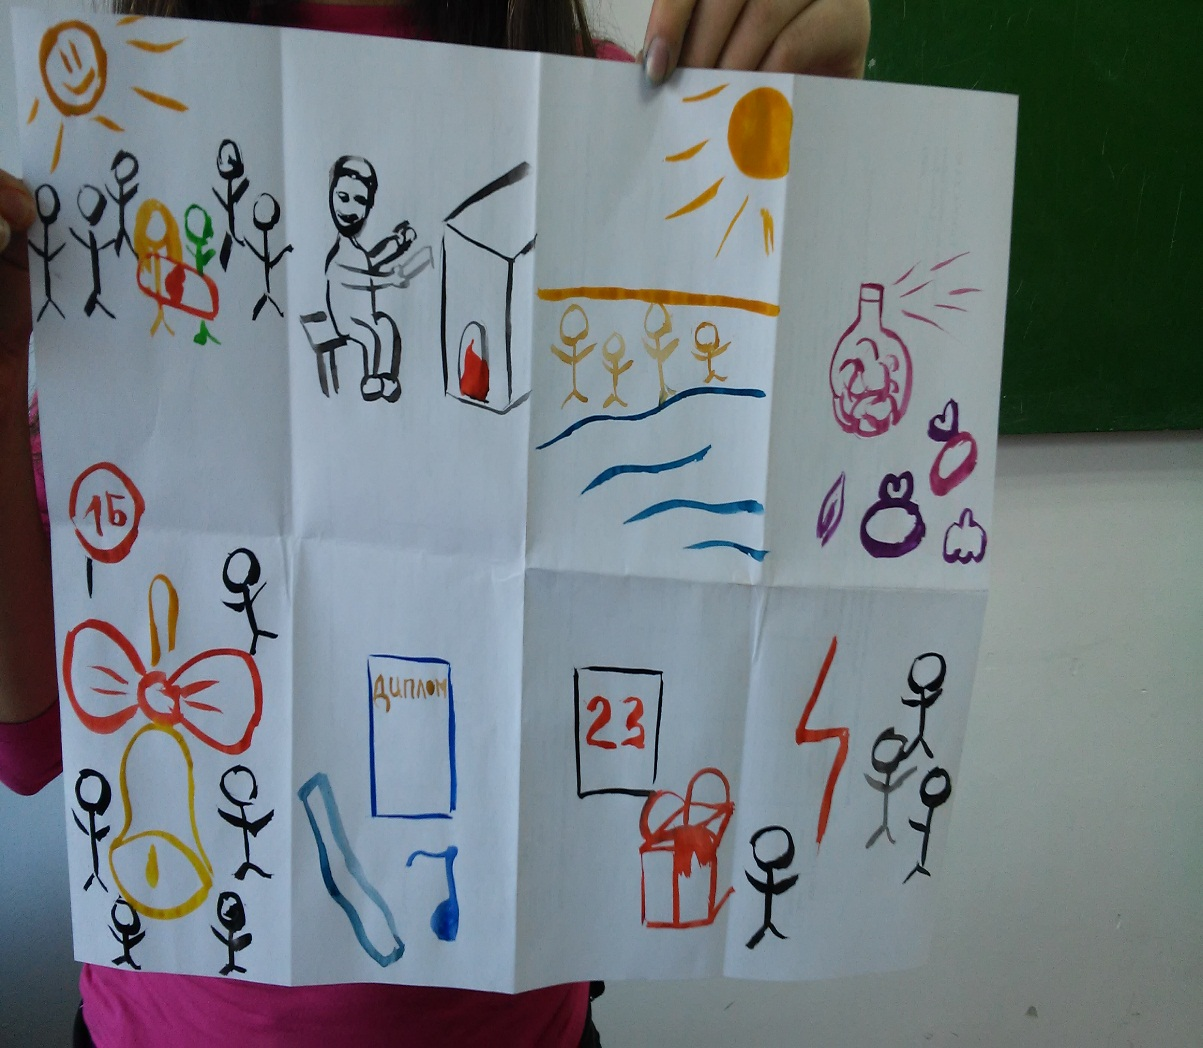 1Б
ДИПЛОМ
23